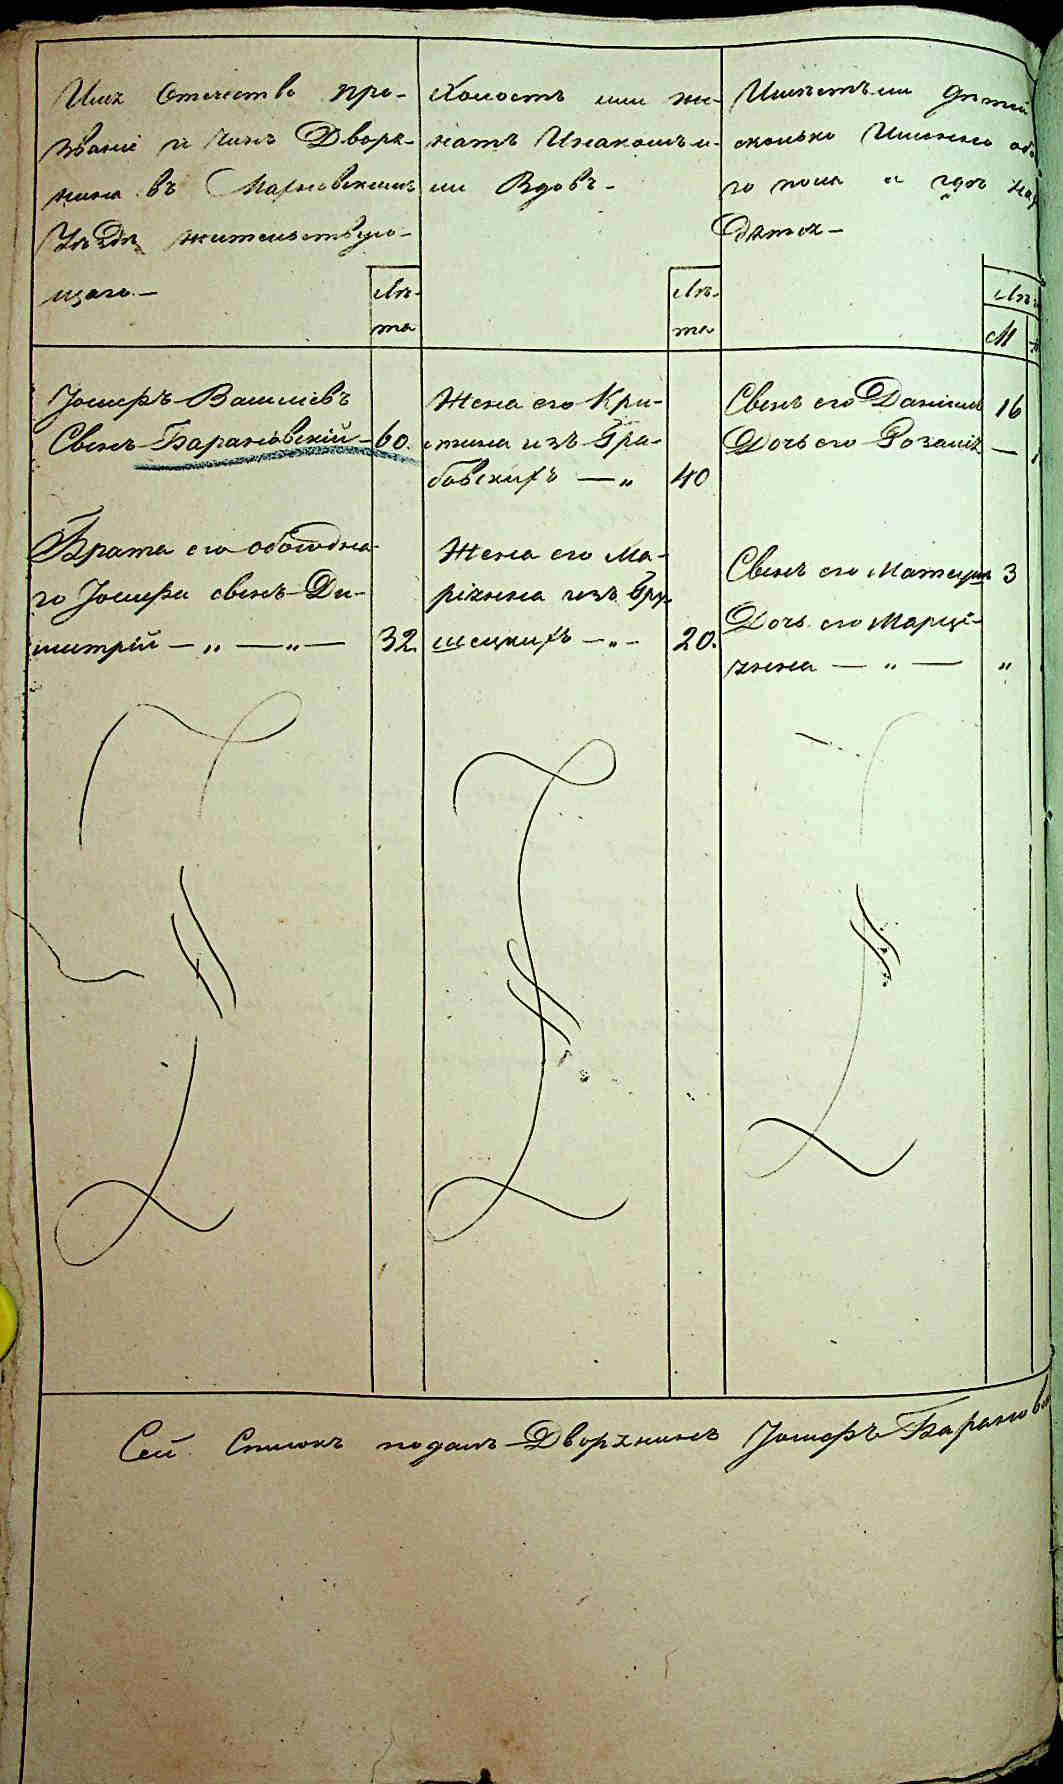 Имя Отечество про-
званіе и Чинъ Дворя-
нина въ Махновскомъ
Уѣздѣ жительствую-
щаго.—
Лѣ-
та
Холостъ или же-
натъ И на комъ и-
ли Вдовъ-
Лѣ-
та
Имѣетъ ли Дѣтей
сколько Именно обо
го пола и гдѣ на
дятся—
Лѣ
М
Іосифъ Васильевъ
Сынъ Барановскій — 60.
Жена его Кри-
стина изъ Гра-
бовскихъ — „ 40
Сынъ его Даніилъ 16
Дочь его Розалія —
Брата его обоюдна-
го Іосифа сынъ Ди-
митрій — „ — „ — 32.
Жена его Ма-
ріянна изъ Гру-
шецкихъ — „ - 20.
Сынъ его Матеушъ 3
Дочь его Марці-
янна — „ — „
Сей Списокъ подалъ Дворянинъ Іосифъ Баранов